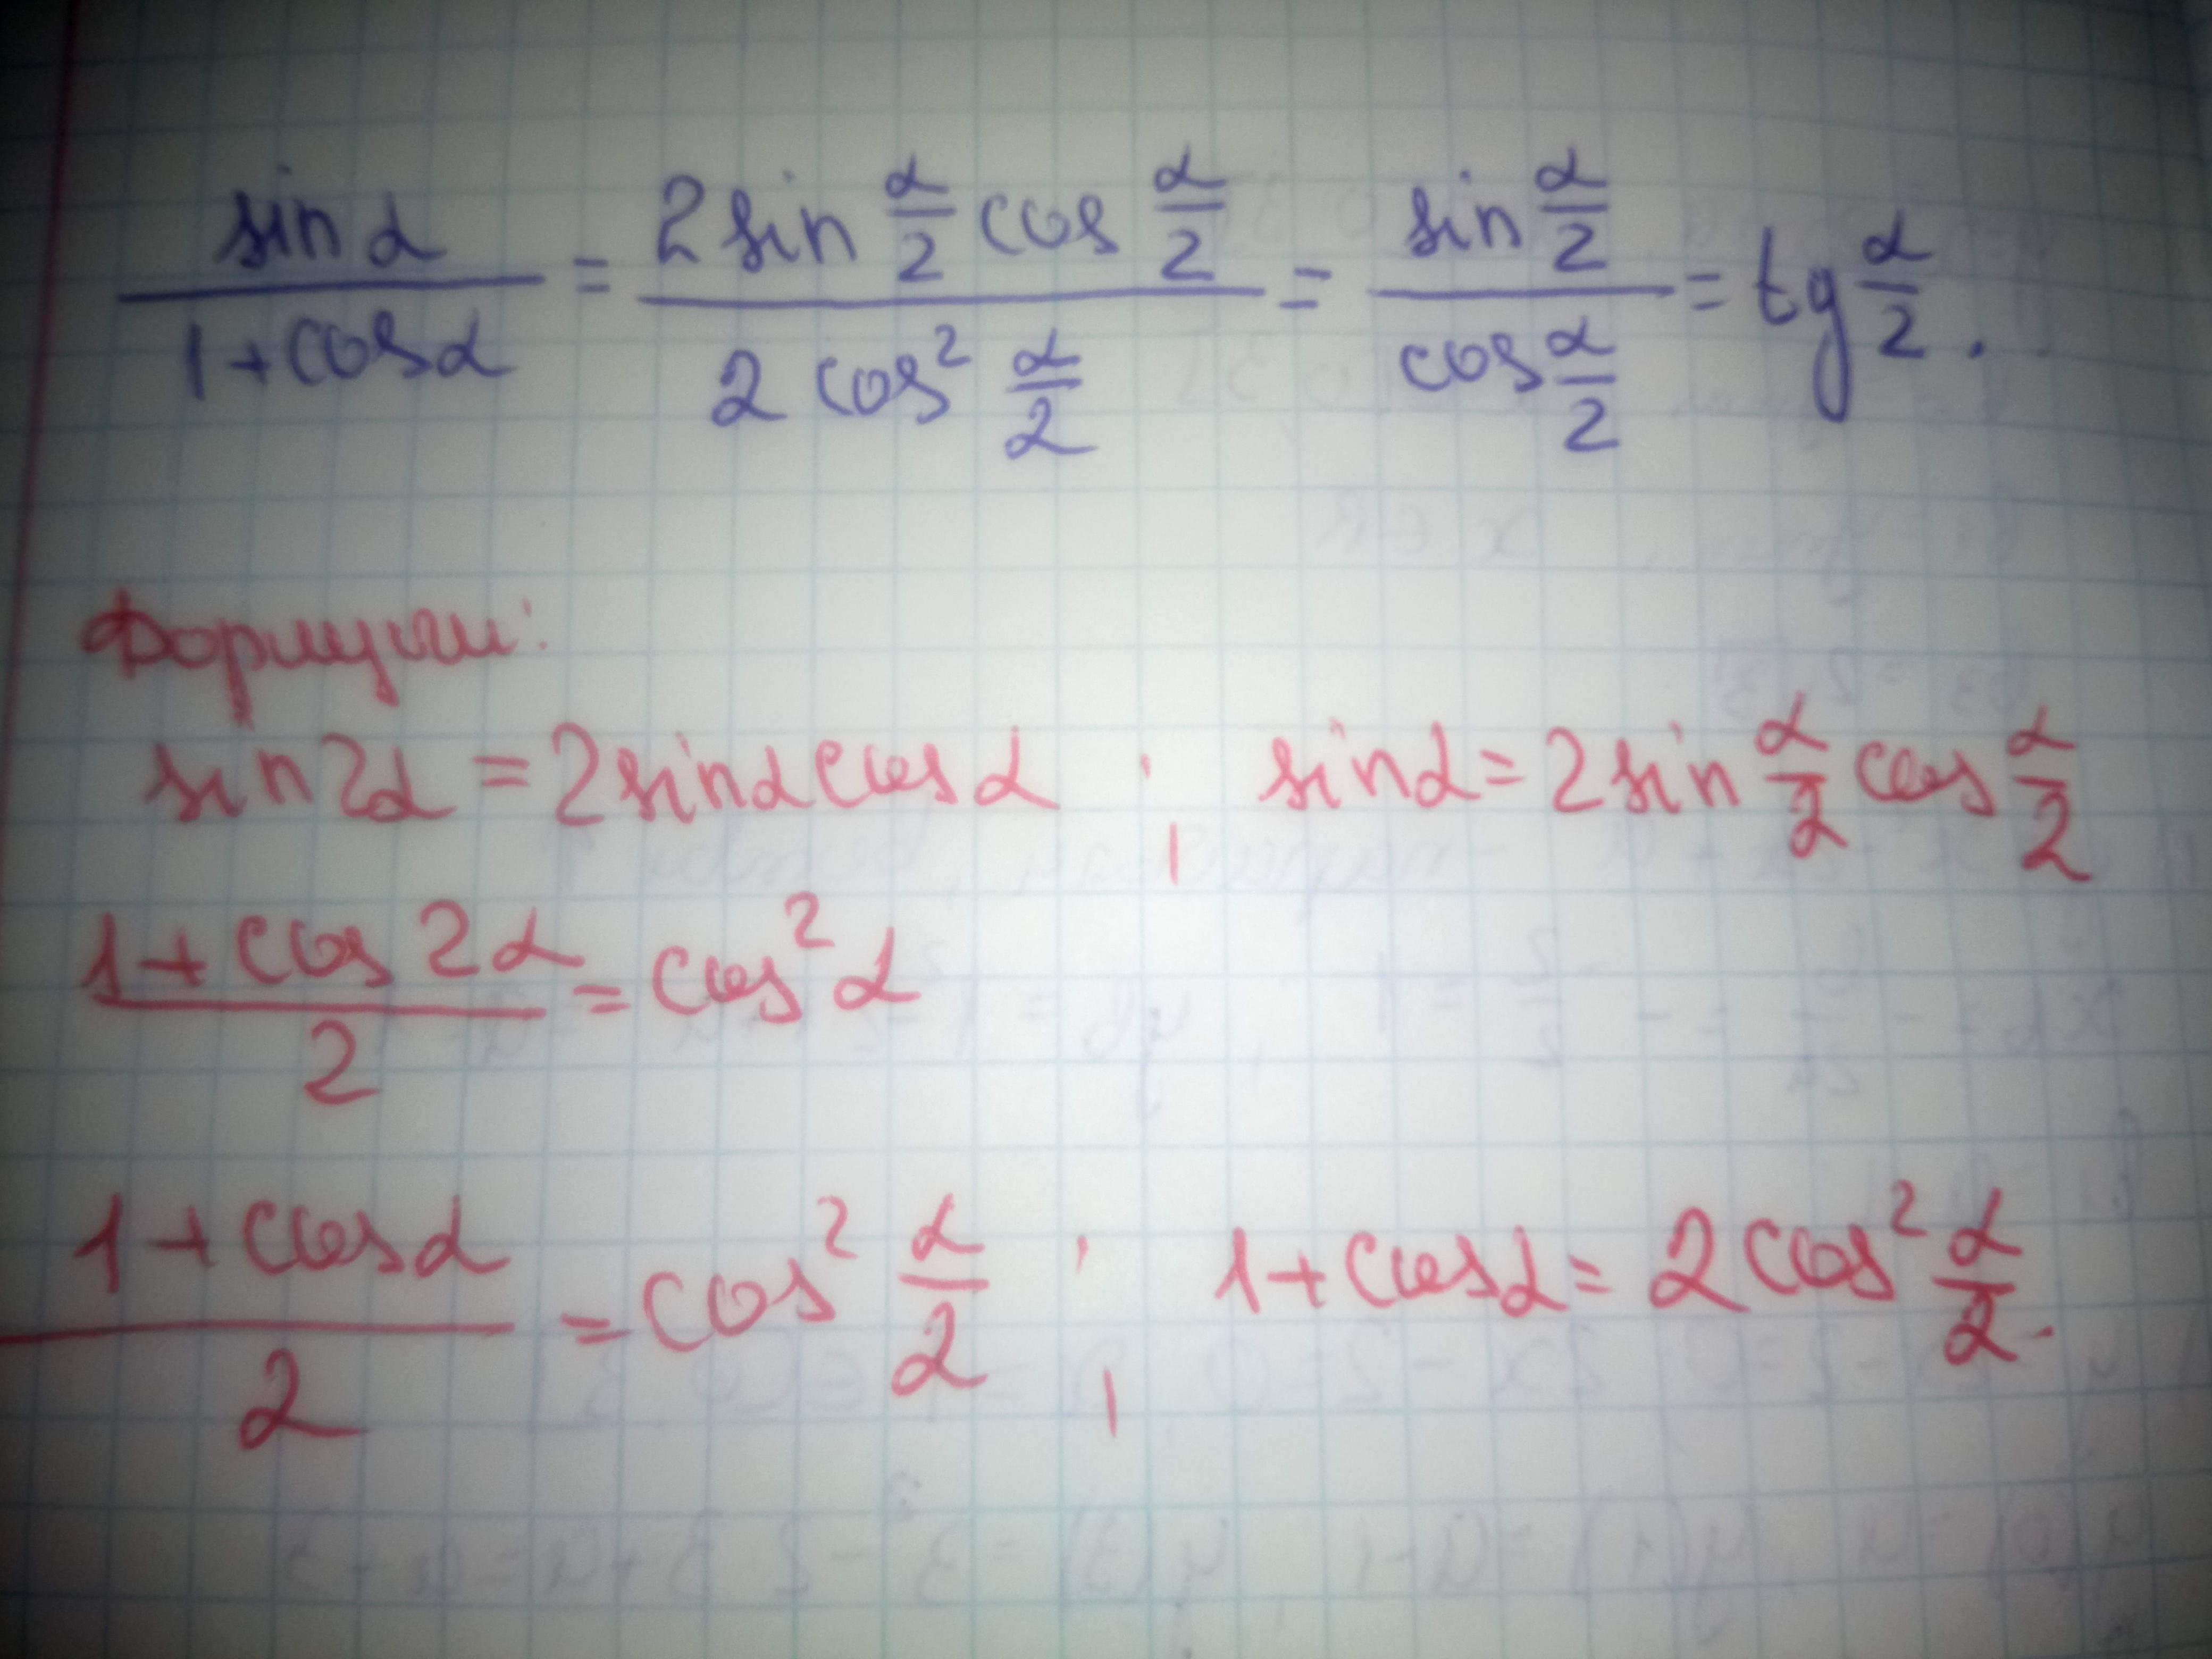 sin α / (1 + cos α) = (2 sin α/2 cos α/2) / (2 cos² α/2) = (sin α/2) / (cos α/2) = tg α/2.
Формули:
sin 2α = 2 sin α cos α ; sin α = 2 sin α/2 cos α/2
(1 + cos 2α) / 2 = cos² α
(1 + cos α) / 2 = cos² α/2 ; 1 + cos α = 2 cos² α/2.